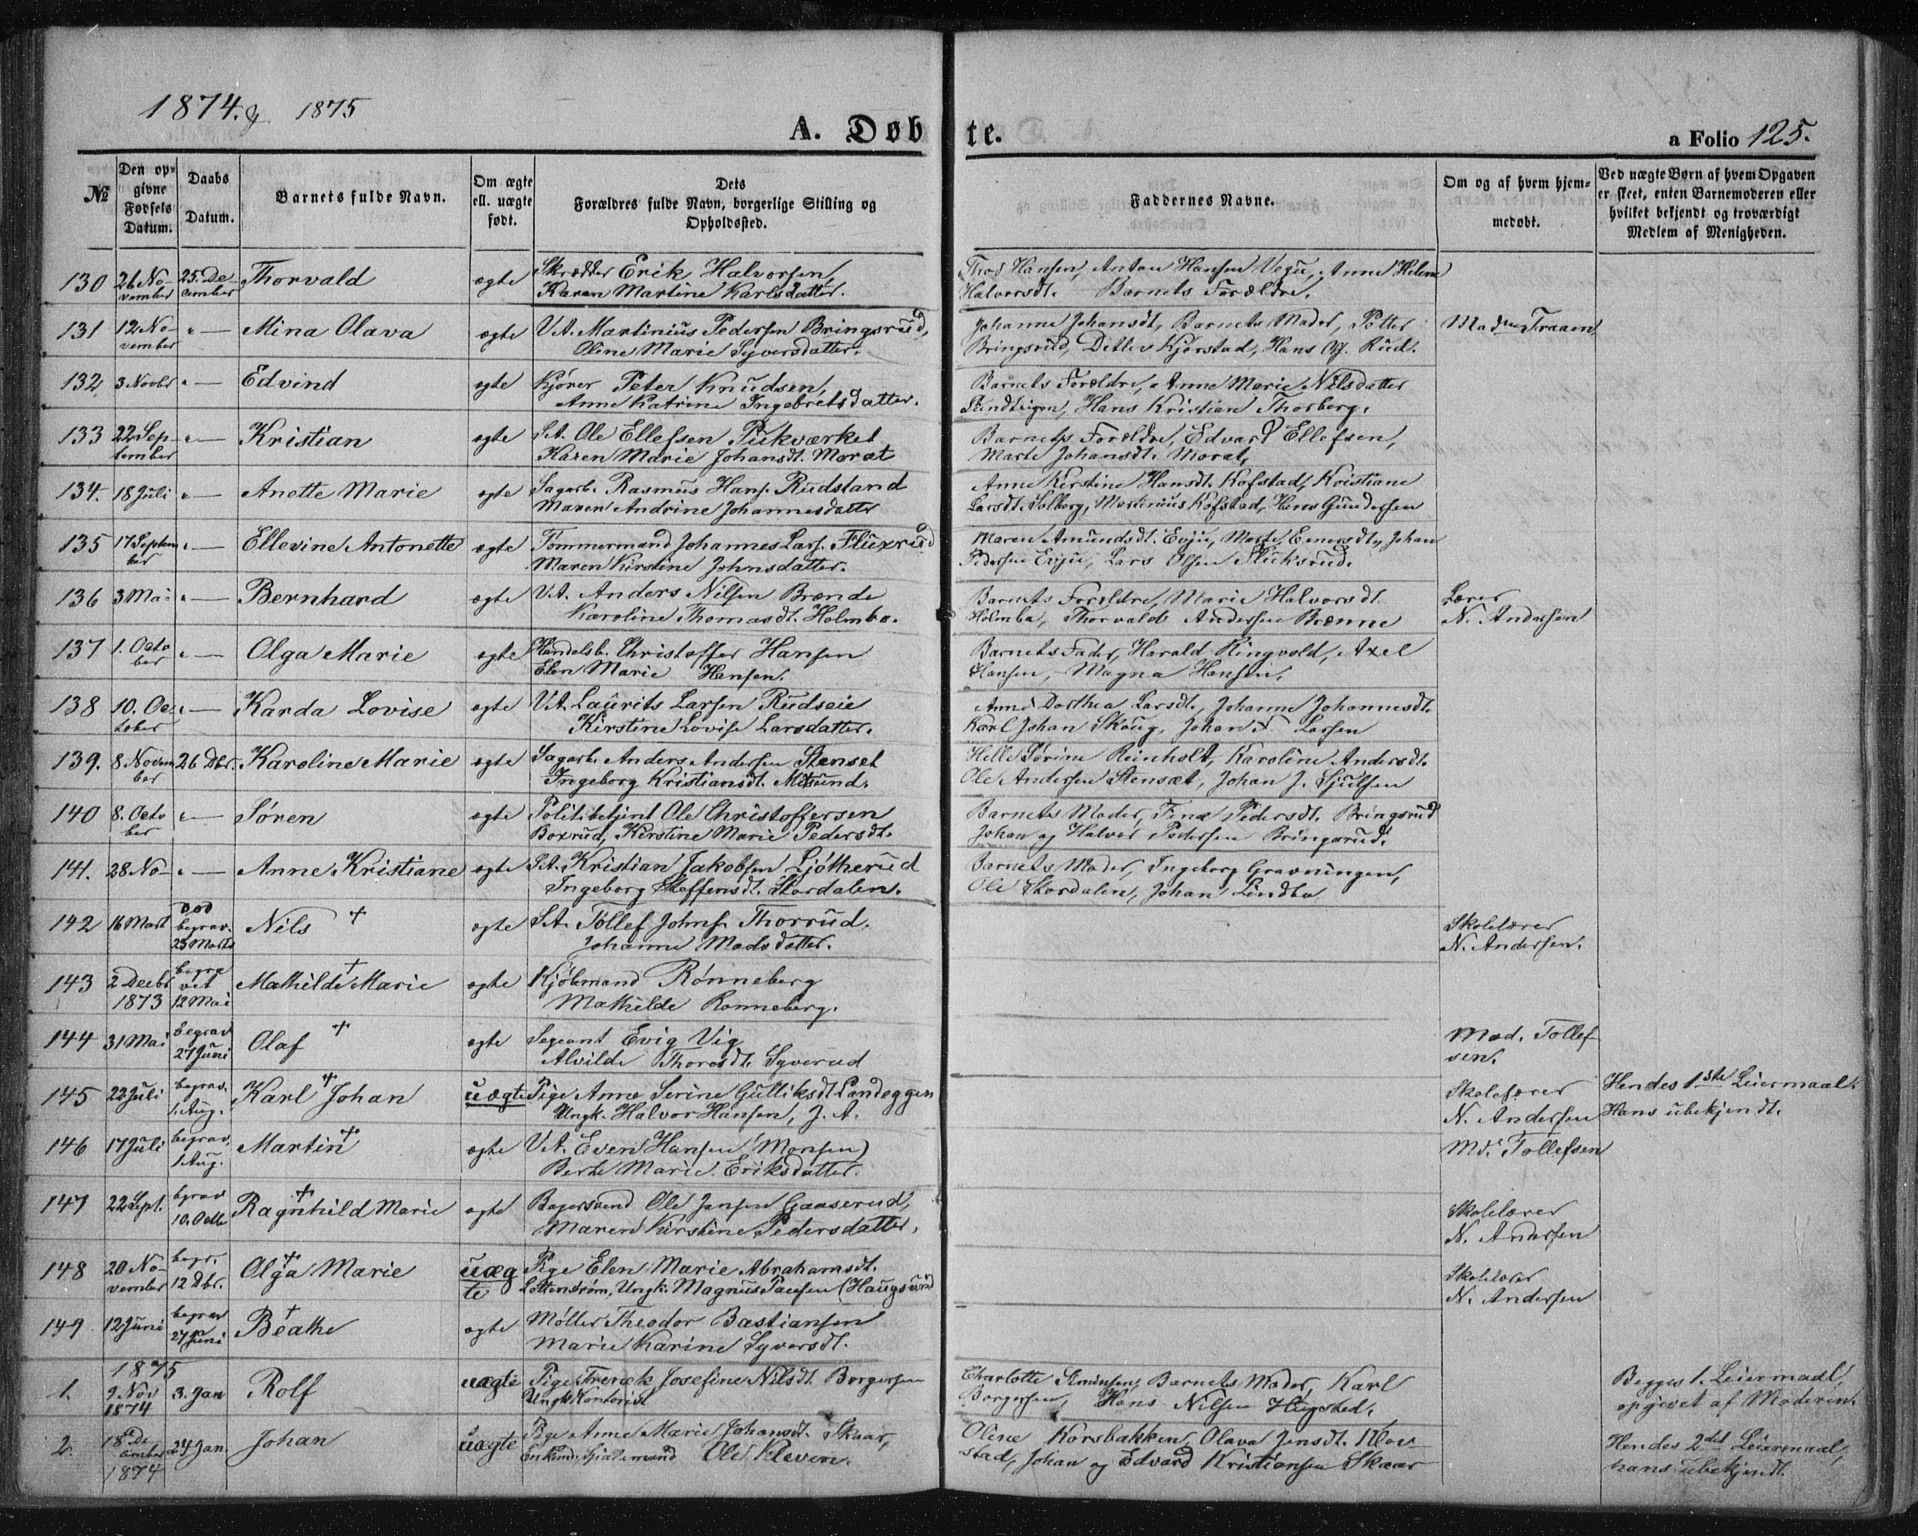 1874. & 1875
A. Døbte.
a Folio 125.
№
Den op-
givne
Fødsels
Datum.
Daabs
Datum.
Barnets fulde Navn.
Om ægte
ell. uægte
født.
Dets
Forældres fulde Navn, borgerlige Stilling og
Opholdssted.
Faddernes Navne.
Om og af hvem hjem-
medøbt.
Ved uægte Børn af hvem Opgaven
er skeet, enten Barnemoderen eller
hvilket bekjendt og troværdigt
Medlem af Menigheden.
130 26 No- 25. De- Thorvald ægte Skrædder Erik Halvorsen, Thos Hansen, Anton Hansen Vegu, Anne Helene
vember cember Karen Martine Karlsdatter. Halvorsdt. Barnets Forældre.
131 12 No- " — Mina Olava ægte V.A. Martinius Pedersen Bringsrud, Johanne Johansdt, Barnets Moder, Petter Mad. Traaen
vember Oline Marie Syversdatter. Bringsrud, Ditlev Kjørstad, Hans Rud.
132 3 Novbr " — Edvind ægte Kjører Peter Knudsen, Barnets Forældre, Anne Marie Nilsdatter
Anne Katrine Ingebretsdatter. Hans Kristian Thorberg.
133 22 Sep- " — Kristian ægte S.A. Ole Ellefsen Pukværket Barnets Forældre, Edvard Ellefsen,
tember Karen Marie Johansdt. Morat Marte Johansdt. Morat,
134. 18 Juli " — Anette Marie ægte Sagarb. Rasmus Hans. Rudstand Anne Kerstine Hansdt. Kofstad, Kristiane
Maren Andrine Johannesdatter Larsdt. Solberg, Martinius Kofstad, Hans Gundersen
135 17 Septem " — Ellevine Antonette ægte Tømmermand Johannes Lars. Fluxrud Maren Amundsdt. Evju, Marte Enersdt, Johan
ber Maren Kirstine Johnsdatter. Pedersen Evju, Lars Olsen Fluksrud.
136 3 Mai " — Bernhard ægte V.A. Anders Nilsen Brænde Barnets Forældre, Marie Halvorsdt. Lærer
Karoline Thomasdt. Holmbo. Holmbo, Thorvald Andersen Brænne N. Andersen
137 1. Octo " — Olga Marie ægte Handelsb. Christoffer Hansen Barnets Fader, Harald Ringvold, Axel
ber Elen Marie Hansen. Hansen, Magna Hansen.
138 10. Oc " — Karda Lovise ægte V.A. Laurits Larsen Rudseie Anne Dorthea Larsdt, Johanne Johannesdt.
tober Kirstine Lovise Larsdatter. Karl Johan Skoug, Johan F Larsen
139. 8 Novem 26 Dbr. Karoline Marie ægte Sagarb. Anders Andersen Stenset Helle Sørine Reinholt, Karoline Andersdt.
ber Ingeborg Kristiansdt. Misund. Ole Andersen Stensæt, Johan J. Sjulsen
140 8. Octo " — Søren ægte Politibetjent Ole Christoffersen Barnets Moder, Tina Pedersdt. Bringsrud
ber Boxrud, Kerstine Marie Pedersdt. Johan og Halvor Pedersen Bringsrud.
141. 28 No- " — Anne Kristiane ægte S.A. Kristian Jakobsen Ljøtherud Barnets Moder, Ingeborg Gravningen,
Ingeborg Steffensdt. Stordalen. Ole Stordalen, Johan Lindbo
142 16 Mart død Nils † ægte S.A. Tollef Johns. Thorrud. Skolelærer
begrav. Johanne Madsdatter. N. Andersen.
25 Marts
143 2 Decbr begra Mathilde † Marie ægte Kjøbmand Rønneberg
1873 vet Mathilde Ronneberg.
12 Mai
144 31 Mai begrav Olaf † ægte Segeant Evig Vig Mad. Tollef
27 Juni Alvilde Thoresdt. Syverud sen.
145 22 Juli begrav. Karl † Johan uægte Pige Anne Serine Gulliksdt. Landeggen Skolelærer Hendes 1ste Leiermaal.
1. Aug. Ungk. Halvor Hansen, J.A. N. Andersen Hans ubekjendt.
146 17 Juli begrav. Martin † ægte V.A. Even Hansen (Monsen) Md. Tollefsen
1 Aug. Berte Marie Eriksdatter.
147 22 Sept. bgrav Ragnhild † Marie ægte Bagersvend Ole Jensen Gaaserud, Skolelærer
10. Octb Maren Kirstine Pedersdatter. N. Andersen
148 20 No- begr. Olga † Marie uæg Pige Elen Marie Abrahamsdt. Skolelærer
vember 12 Dbr. te Lottenstrøm, Ungk. Magnus Paulsen (Haugsrud N. Andersen
149 12 Juni begrav Beathe † ægte Møller Theodor Bastiansen
27 Juni Marie Karine Syversdt.
1875
1. 9 Nov 3. Jan Rolf uægte Pige Fredrik Josefine Nilsdt. Borgersen Charlotte Simonsen, Barnets Moder, Karl Begges 1. Leiermaal,
1874 Ungk. Kontorist Borgersen, Hans Nilsen Hugstad. opgivet af Moderen.
2. 18 De 24 Jan. Johan uægte Pige Anne Marie Johansdt. Skaar, Oline Korsbakken, Olava Jensdt. Hendes 2det Leiermaal,
cember Enkemd. Ole Kleven. stad, Johan og Edvard Kristiansen Skaar hans ubekjendt.
1874